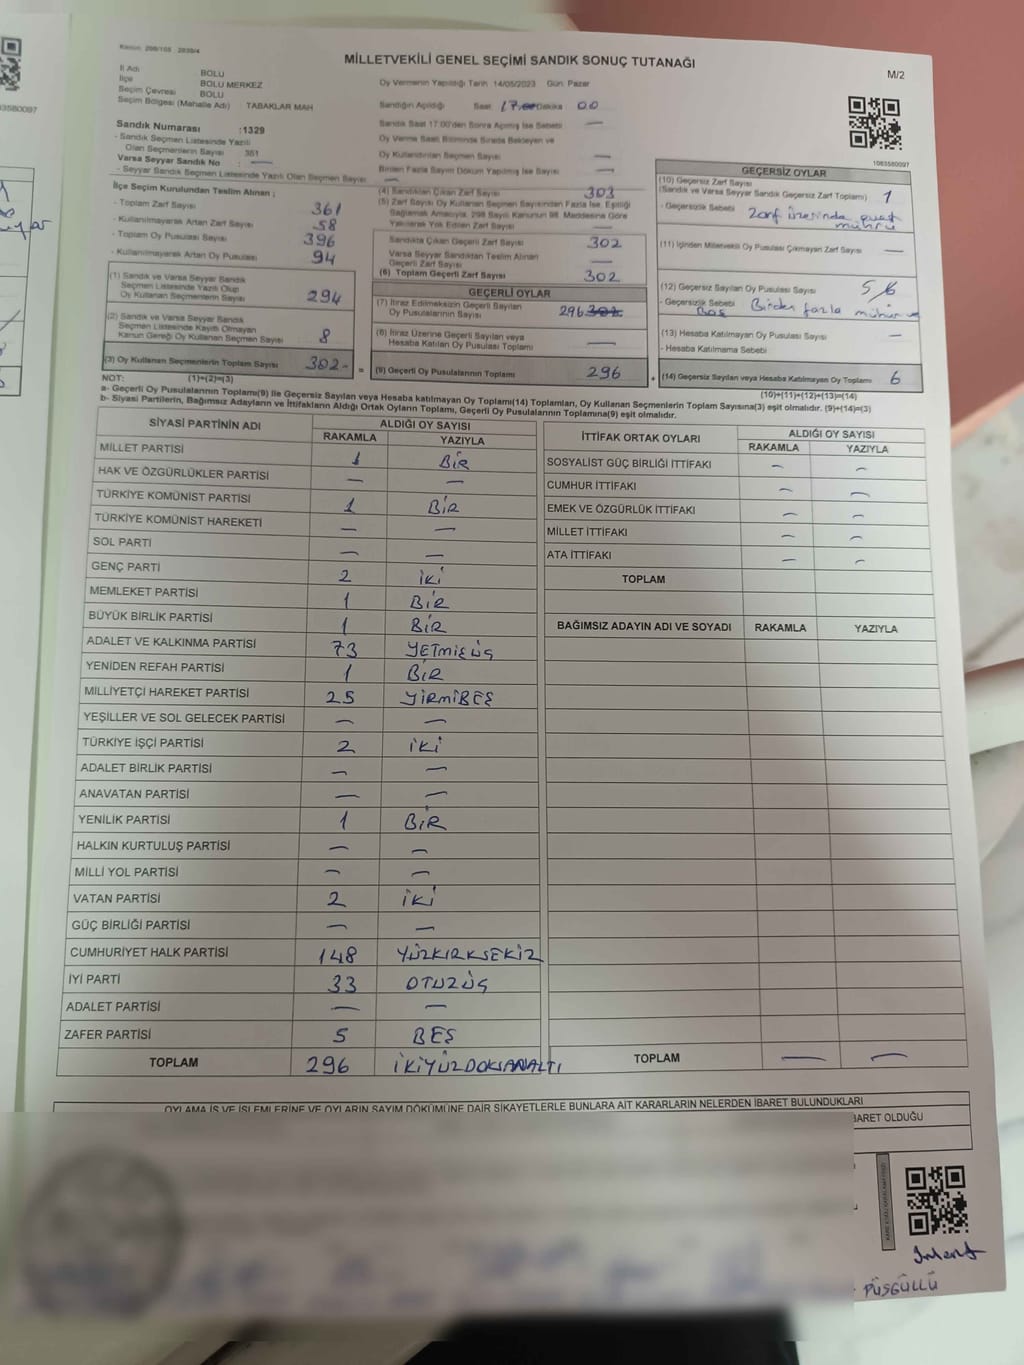 MİLLETVEKİLİ GENEL SEÇİMİ SANDIK SONUÇ TUTANAĞI
M/2
İl Adı BOLU
İlçe BOLU MERKEZ
Seçim Çevresi BOLU
Seçim Bölgesi (Mahalle Adı) TABAKLAR MAH
Sandık Numarası :1329
- Sandık Seçmen Listesinde Yazılı
Olan Seçmenlerin Sayısı
Varsa Seyyar Sandık No : —
- Seyyar Sandık Seçmen Listesinde Yazılı Olan Seçmen Sayısı —
Oy Vermenin Yapıldığı Tarih 14/05/2023 Gün: Pazar
Sandığın Açıldığı Saat 17.00 Dakika 00
Sandık Saat 17:00'den Sonra Açılmış İse Sebebi —
Oy Verme Saati Bitiminde Sırada Bekleyen ve
Oy Kullandırılan Seçmen Sayısı —
Birden Fazla Sayım Dökum Yapılmış İse Sayısı —
1083580097
İlçe Seçim Kurulundan Teslim Alınan ;
- Toplam Zarf Sayısı 361
- Kullanılmayarak Artan Zarf Sayısı 58
- Toplam Oy Pusulası Sayısı 396
- Kullanılmayarak Artan Oy Pusulası 94
(1) Sandık ve Varsa Seyyar Sandık
Seçmen Listesinde Yazılı Olup
Oy Kullanan Seçmenlerin Sayısı 294
(2) Sandık ve Varsa Seyyar Sandık
Seçmen Listesinde Kayıtlı Olmayan
Kanun Gereği Oy Kullanan Seçmen Sayısı 8
(3) Oy Kullanan Seçmenlerin Toplam Sayısı 302
(4) Sandıktan Çıkan Zarf Sayısı 303
(5) Zarf Sayısı Oy Kullanan Seçmen Sayısından Fazla İse, Eşitliği
Sağlamak Amacıyla, 298 Sayılı Kanunun 98. Maddesine Göre
Yakılarak Yok Edilen Zarf Sayısı —
Sandıkta Çıkan Geçerli Zarf Sayısı 302
Varsa Seyyar Sandıktan Teslim Alınan
Geçerli Zarf Sayısı —
(6) Toplam Geçerli Zarf Sayısı 302
GEÇERLİ OYLAR
(7) İtiraz Edilmeksizin Geçerli Sayılan
Oy Pusulalarının Sayısı 296 302
(8) İtiraz Üzerine Geçerli Sayılan veya
Hesaba Katılan Oy Pusulası Toplamı —
= (9) Geçerli Oy Pusulalarının Toplamı 296
GEÇERSİZ OYLAR
(10) Geçersiz Zarf Sayısı
(Sandık ve Varsa Seyyar Sandık Geçersiz Zarf Toplamı) 1
- Geçersizlik Sebebi Zarf üzerinde
mührü
(11) İçinden Milletvekili Oy Pusulası Çıkmayan Zarf Sayısı —
(12) Geçersiz Sayılan Oy Pusulası Sayısı 5/6
- Geçersizlik Sebebi Birden fazla mühür ve
Boş
(13) Hesaba Katılmayan Oy Pusulası Sayısı —
- Hesaba Katılmama Sebebi
+ (14) Geçersiz Sayılan veya Hesaba Katılmayan Oy Toplamı 6
NOT: (1)+(2)=(3)
(10)+(11)+(12)+(13)=(14)
a- Geçerli Oy Pusulalarının Toplamı(9) İle Geçersiz Sayılan veya Hesaba Katılmayan Oy Toplamı(14) Toplamları, Oy Kullanan Seçmenlerin Toplam Sayısına(3) eşit olmalıdır. (9)+(14)=(3)
b- Siyasi Partilerin, Bağımsız Adayların ve İttifakların Aldığı Ortak Oyların Toplamı, Geçerli Oy Pusulalarının Toplamına(9) eşit olmalıdır.
SİYASİ PARTİNİN ADI
ALDIĞI OY SAYISI
RAKAMLA YAZIYLA
MİLLET PARTİSİ 1 BİR
HAK VE ÖZGÜRLÜKLER PARTİSİ — —
TÜRKİYE KOMÜNİST PARTİSİ 1 BİR
TÜRKİYE KOMÜNİST HAREKETİ — —
SOL PARTİ — —
GENÇ PARTİ 2 İKİ
MEMLEKET PARTİSİ 1 BİR
BÜYÜK BİRLİK PARTİSİ 1 BİR
ADALET VE KALKINMA PARTİSİ 73 YETMİŞÜÇ
YENİDEN REFAH PARTİSİ 1 BİR
MİLLİYETÇİ HAREKET PARTİSİ 25 YİRMİBEŞ
YEŞİLLER VE SOL GELECEK PARTİSİ — —
TÜRKİYE İŞÇİ PARTİSİ 2 İKİ
ADALET BİRLİK PARTİSİ — —
ANAVATAN PARTİSİ — —
YENİLİK PARTİSİ 1 BİR
HALKIN KURTULUŞ PARTİSİ — —
MİLLİ YOL PARTİSİ — —
VATAN PARTİSİ 2 İKİ
GÜÇ BİRLİĞİ PARTİSİ — —
CUMHURİYET HALK PARTİSİ 148 YÜZKIRKSEKİZ
İYİ PARTİ 33 OTUZÜÇ
ADALET PARTİSİ — —
ZAFER PARTİSİ 5 BEŞ
TOPLAM 296 İKİYÜZDOKSANALTI
İTTİFAK ORTAK OYLARI
ALDIĞI OY SAYISI
RAKAMLA YAZIYLA
SOSYALİST GÜÇ BİRLİĞİ İTTİFAKI — —
CUMHUR İTTİFAKI — —
EMEK VE ÖZGÜRLÜK İTTİFAKI — —
MİLLET İTTİFAKI — —
ATA İTTİFAKI — —
TOPLAM
BAĞIMSIZ ADAYIN ADI VE SOYADI RAKAMLA YAZIYLA
TOPLAM — —
OYLAMA İŞ VE İŞLEMLERİNE VE OYLARIN SAYIM DÖKÜMÜNE DAİR ŞİKAYETLERLE BUNLARA AİT KARARLARIN NELERDEN İBARET BULUNDUKLARI
BARET OLDUĞU
PÜSGÜLLÜ